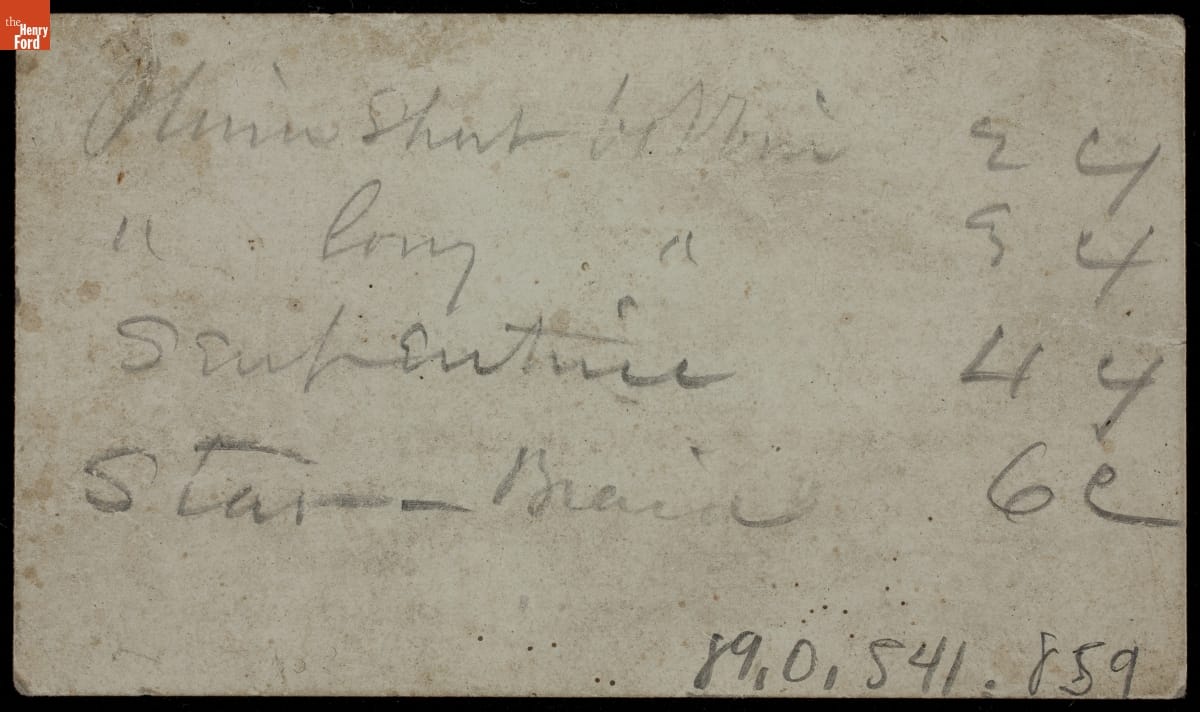 the Henry Ford
Plain Short bobbin 2 cy
" long " 3 cy
Serpentine 4 cy
Star - Braid 6 c
89.0.541.859